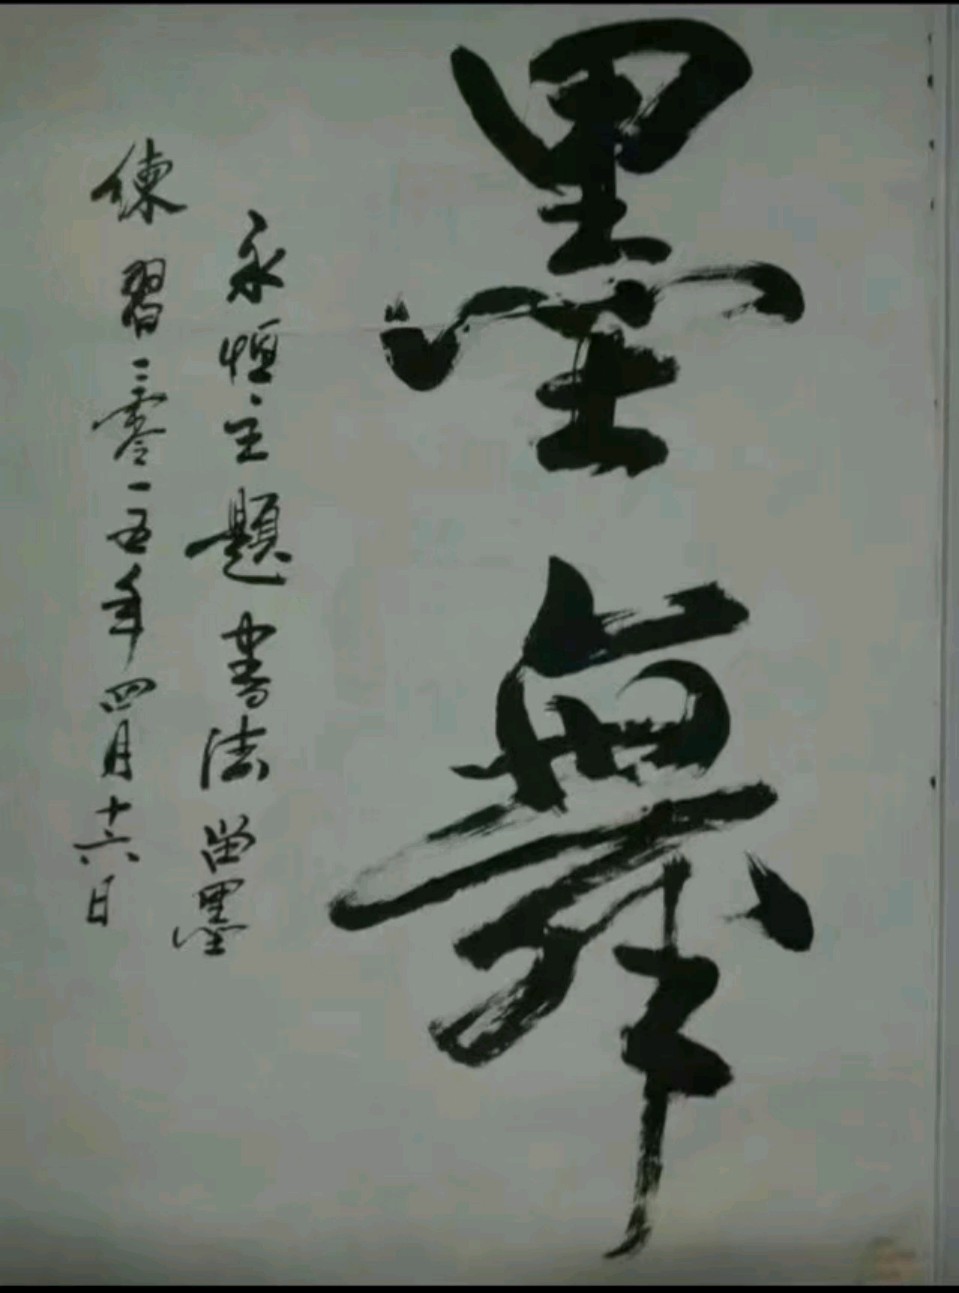 墨舞
永恒主题书法留墨
練習二零一五年四月十六日